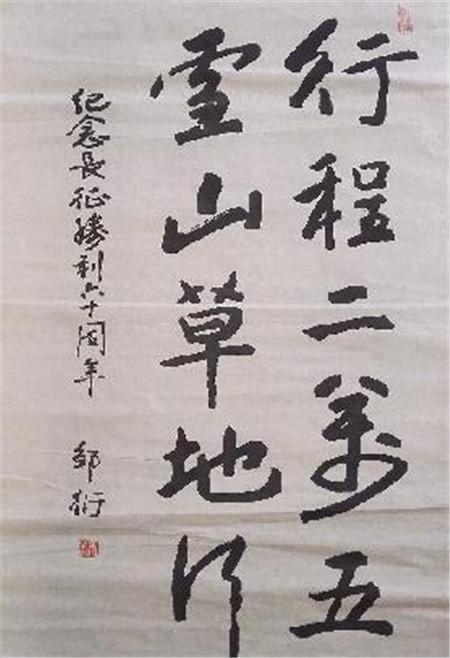 行程二萬五
雪山草地行
纪念長征勝利六十周年 邹衍